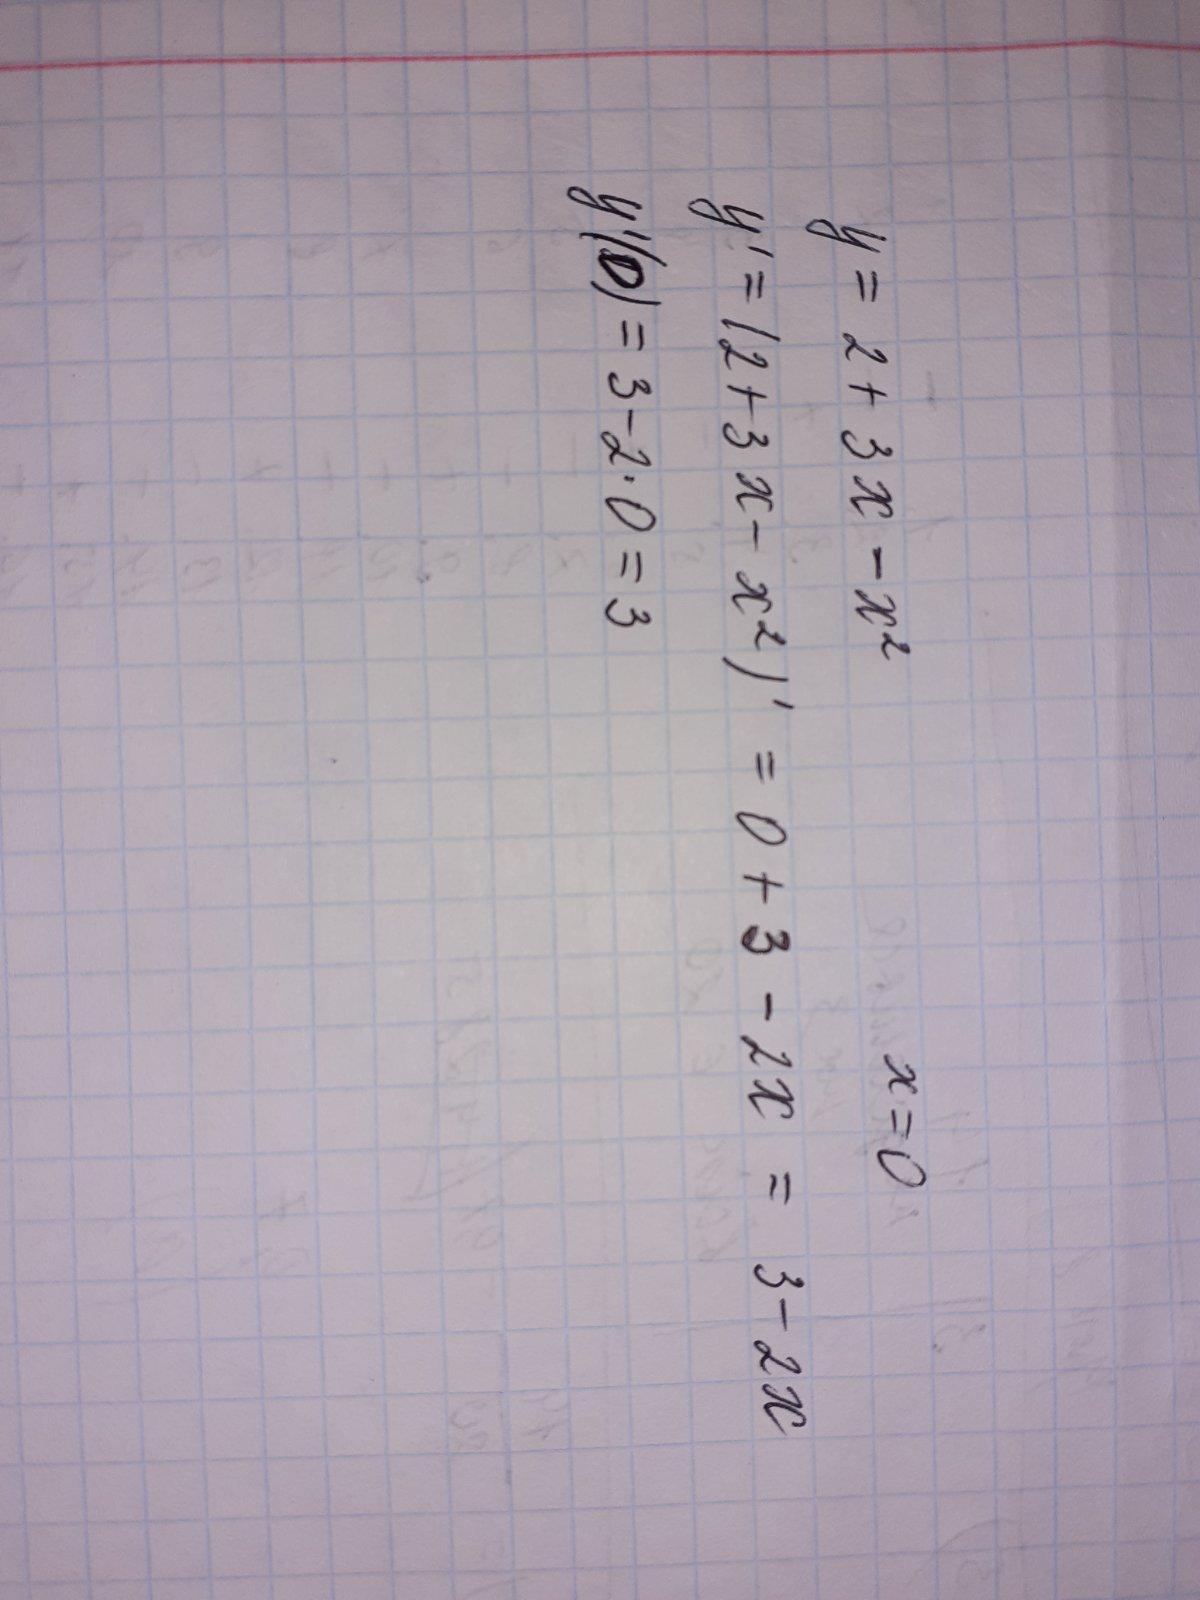 y = 2 + 3x - x² x = 0
y' = (2 + 3x - x²)' = 0 + 3 - 2x = 3 - 2x
y'(0) = 3 - 2·0 = 3